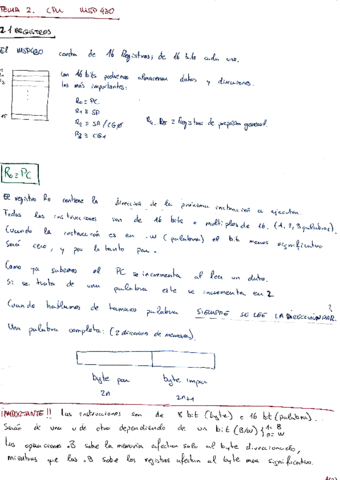 TEMA 2. CPU MSP430
2.1 REGISTROS
El MSP430 consta de 16 Registros, de 16 bits cada uno.
Con 16 bits podemos almacenar datos y direcciones.
Los más importantes:
R0 = PC
R1 = SP
R2 = SR/CG0
R3 = CG1
R4 R15 = Registros de propósito general.
R0 = PC
El registro R0 contiene la dirección de la próxima instrucción a ejecutar.
Todas las instrucciones son de 16 bits o múltiplos de 16. (1, 2, 3 palabras).
Cuando la instrucción es en .W (palabra) el bit menos significativo
será cero, y por lo tanto par.
Como ya sabemos el PC se incrementa al leer un dato.
Si se trata de una palabra este se incrementa en 2.
Cuando hablamos de tamaño palabra SIEMPRE SE LEE LA DIRECCIÓN PAR. ?
Una palabra completa: (2 direcciones de memoria).
byte par byte impar
2n 2n+1
¡IMPORTANTE!! Las instrucciones son de 8 bit (byte) o 16 bit (palabra)...
Serán de una u otra dependiendo de un bit (B/W) 1: B 0: W
Las operaciones .B sobre la memoria afectan solo al byte direccionado,
mientras que las .B sobre los registros afectan al byte más significativo.